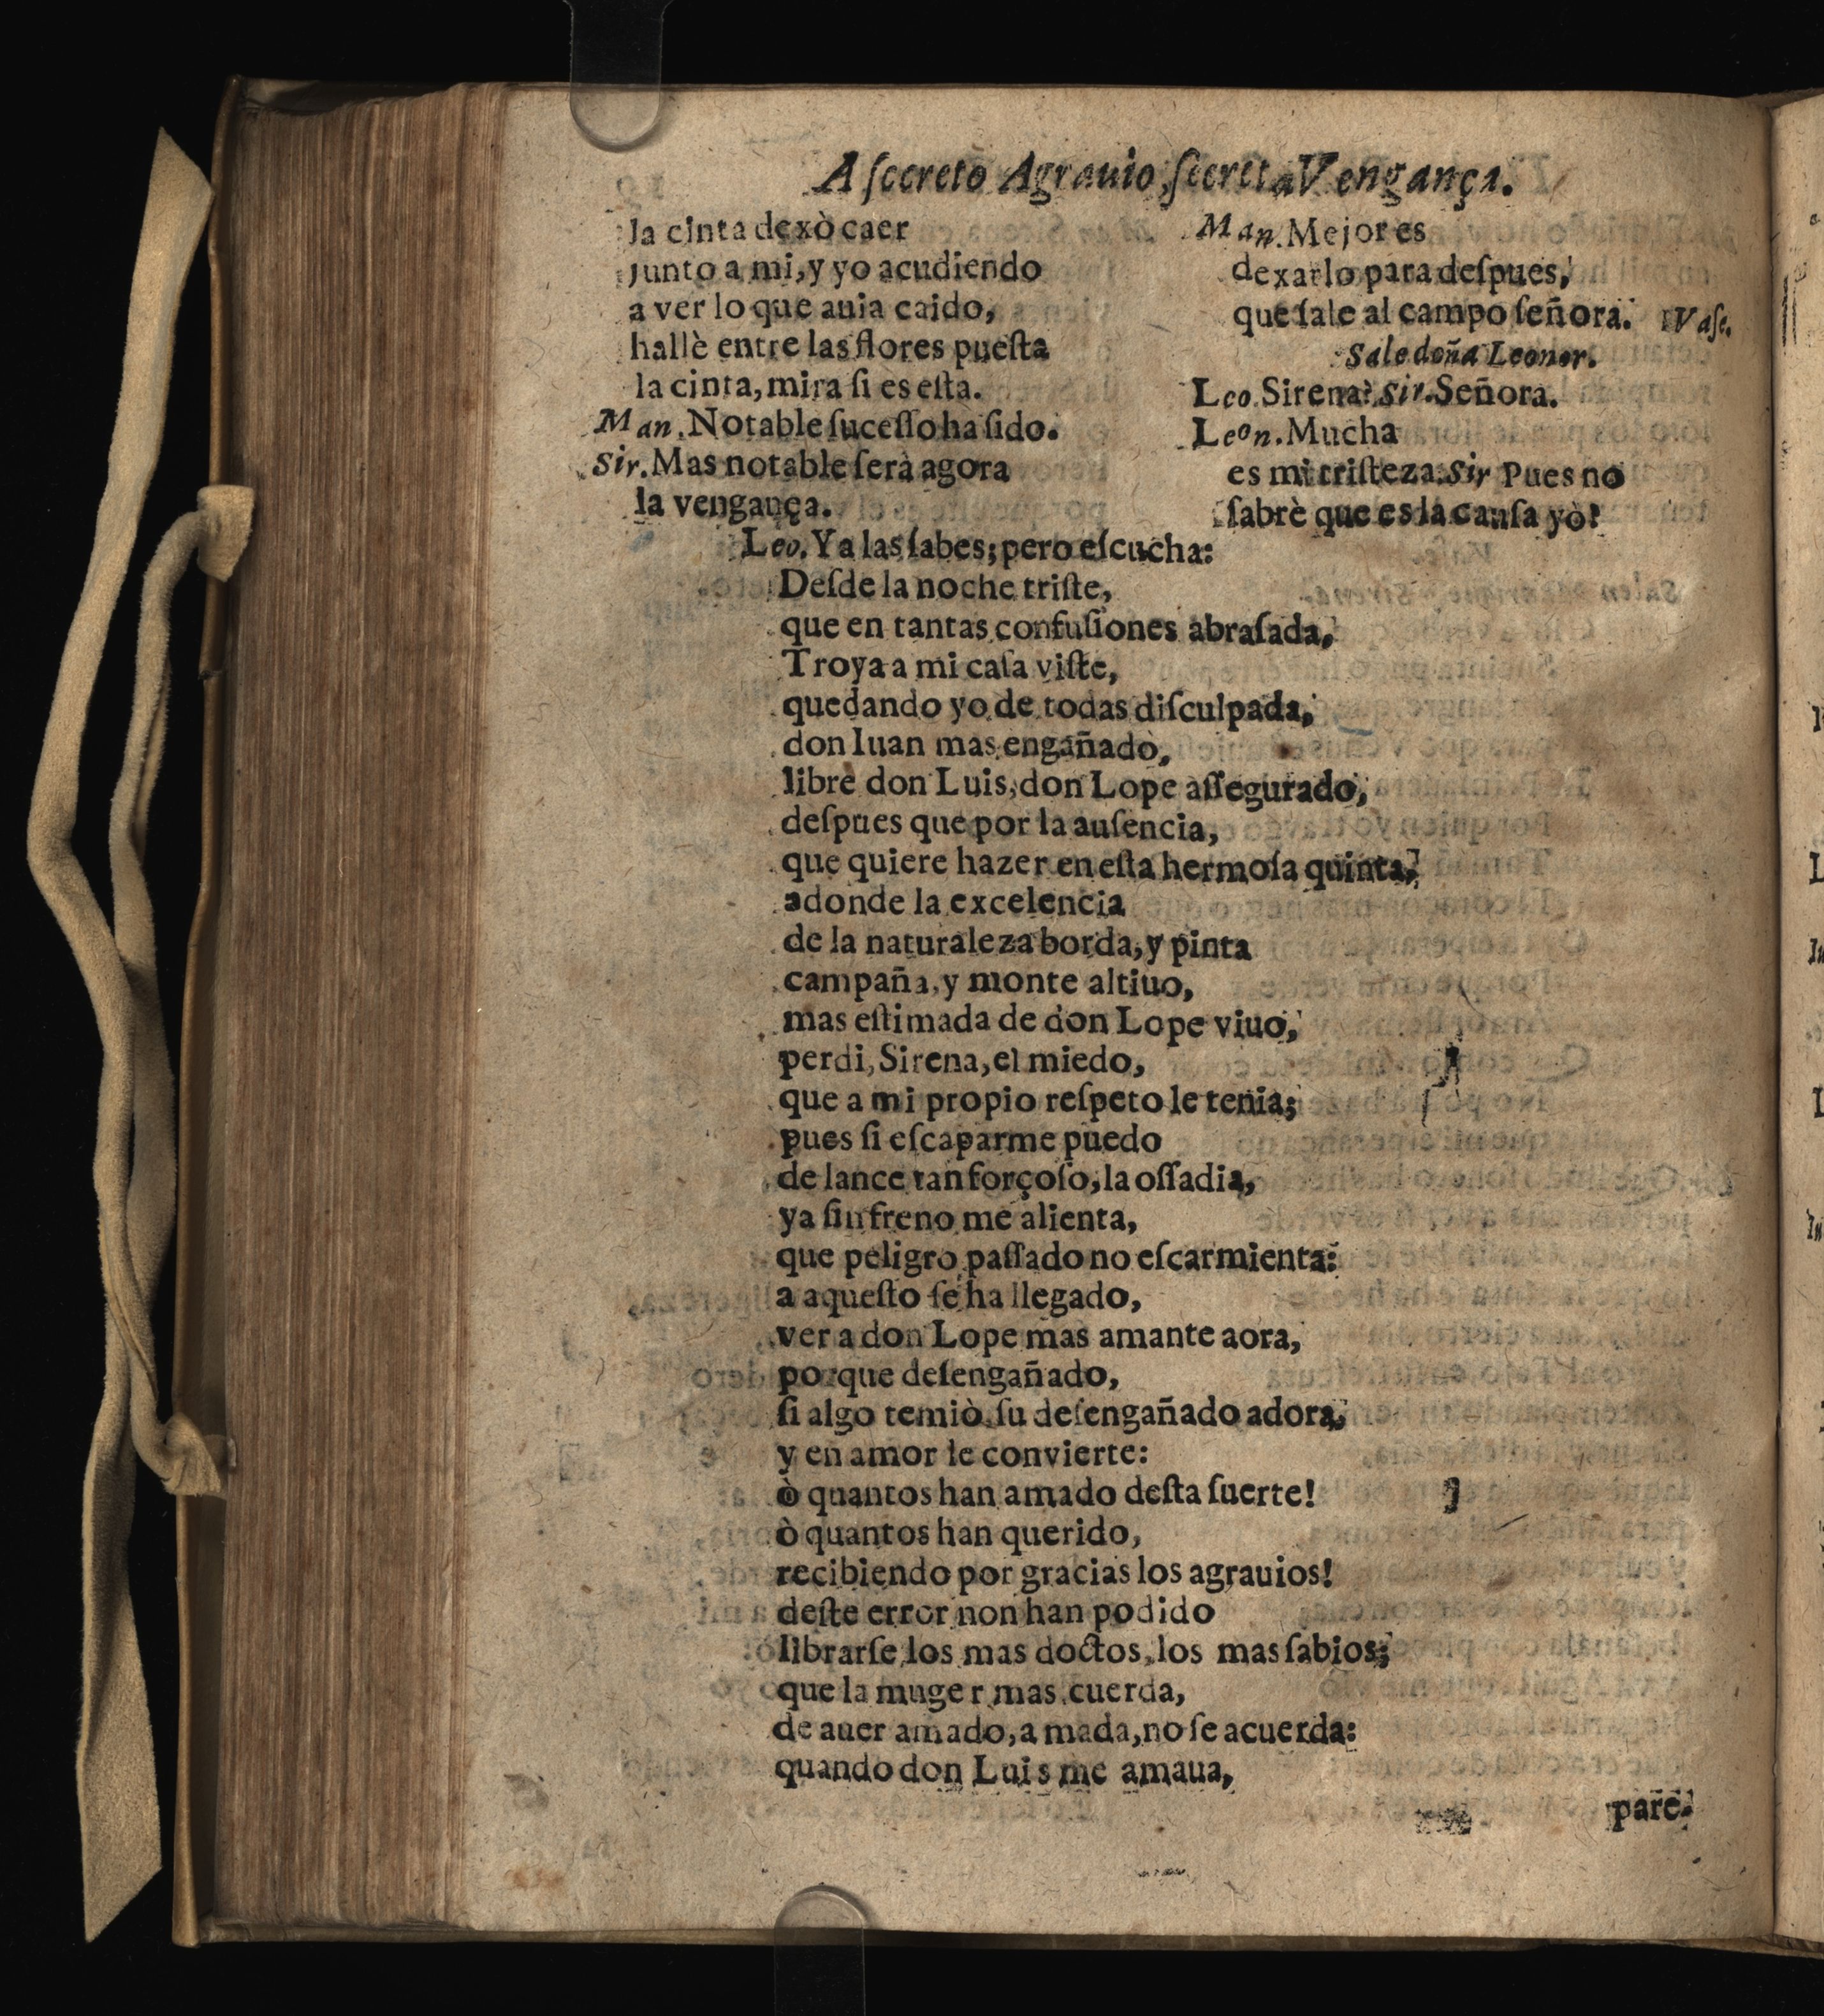 A ſecreto Agrauio, ſecreta Vengança.
la cinta dexò caer
junto a mi, y yo acudiendo
a ver lo que auia caido,
hallè entre las flores pueſta
la cinta, mira ſi es eſta.
Man. Notable ſuceſſo ha ſido.
Sir. Mas notable ſerà agora
la vengança.
Man. Mejor es
dexarlo para deſpues,
que ſale al campo ſeñora. Vaſe.
Sale doña Leonor.
Leo. Sirena? Sir. Señora.
Leon. Mucha
es mi triſteza. Sir Pues no
ſabrè que es la cauſa yò?
Leo. Ya las ſabes; pero eſcucha:
Deſde la noche triſte,
que en tantas confuſiones abraſada,
Troya a mi caſa viſte,
quedando yo de todas diſculpada,
don Iuan mas engañado,
librè don Luis, don Lope aſſegurado,
deſpues que por la auſencia,
que quiere hazer en eſta hermoſa quinta,
adonde la excelencia
de la naturaleza borda, y pinta
campaña, y monte altiuo,
mas eſtimada de don Lope viuo,
perdi, Sirena, el miedo,
que a mi propio reſpeto le tenia;
pues ſi eſcaparme puedo
de lance tan forçoſo, la oſſadia,
ya ſin freno me alienta,
que peligro paſſado no eſcarmienta:
a aqueſto ſe ha llegado,
ver a don Lope mas amante aora,
porque deſengañado,
ſi algo temiò ſu deſengañado adora,
y en amor le convierte:
ò quantos han amado deſta ſuerte!
ò quantos han querido,
recibiendo por gracias los agrauios!
deſte error non han podido
librarſe los mas doctos, los mas ſabios;
que la muger mas cuerda,
de auer amado, a mada, no ſe acuerda:
quando don Luis me amaua,
pare.